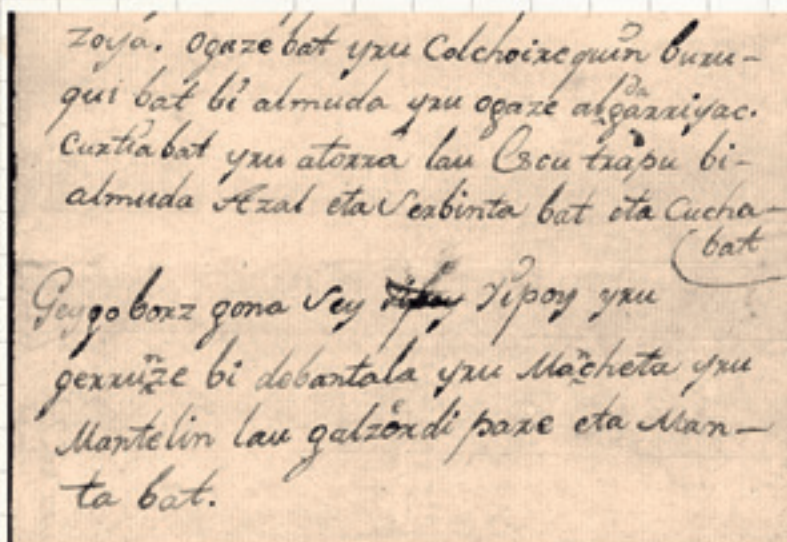 zoyá. ogaze bat yru Colchoirequin buru-
qui bat bi almuda yru ogaze algarriyac.
curtia bat yru atorra lau Escu trapu bi-
almuda Azal eta Serbinta bat eta Cucha-
bat
Geygo borz gona Sey Yipoy yru
gerruze bi debantala yru Mancheta yru
Mantelin lau galzerdi pare eta Man-
ta bat.